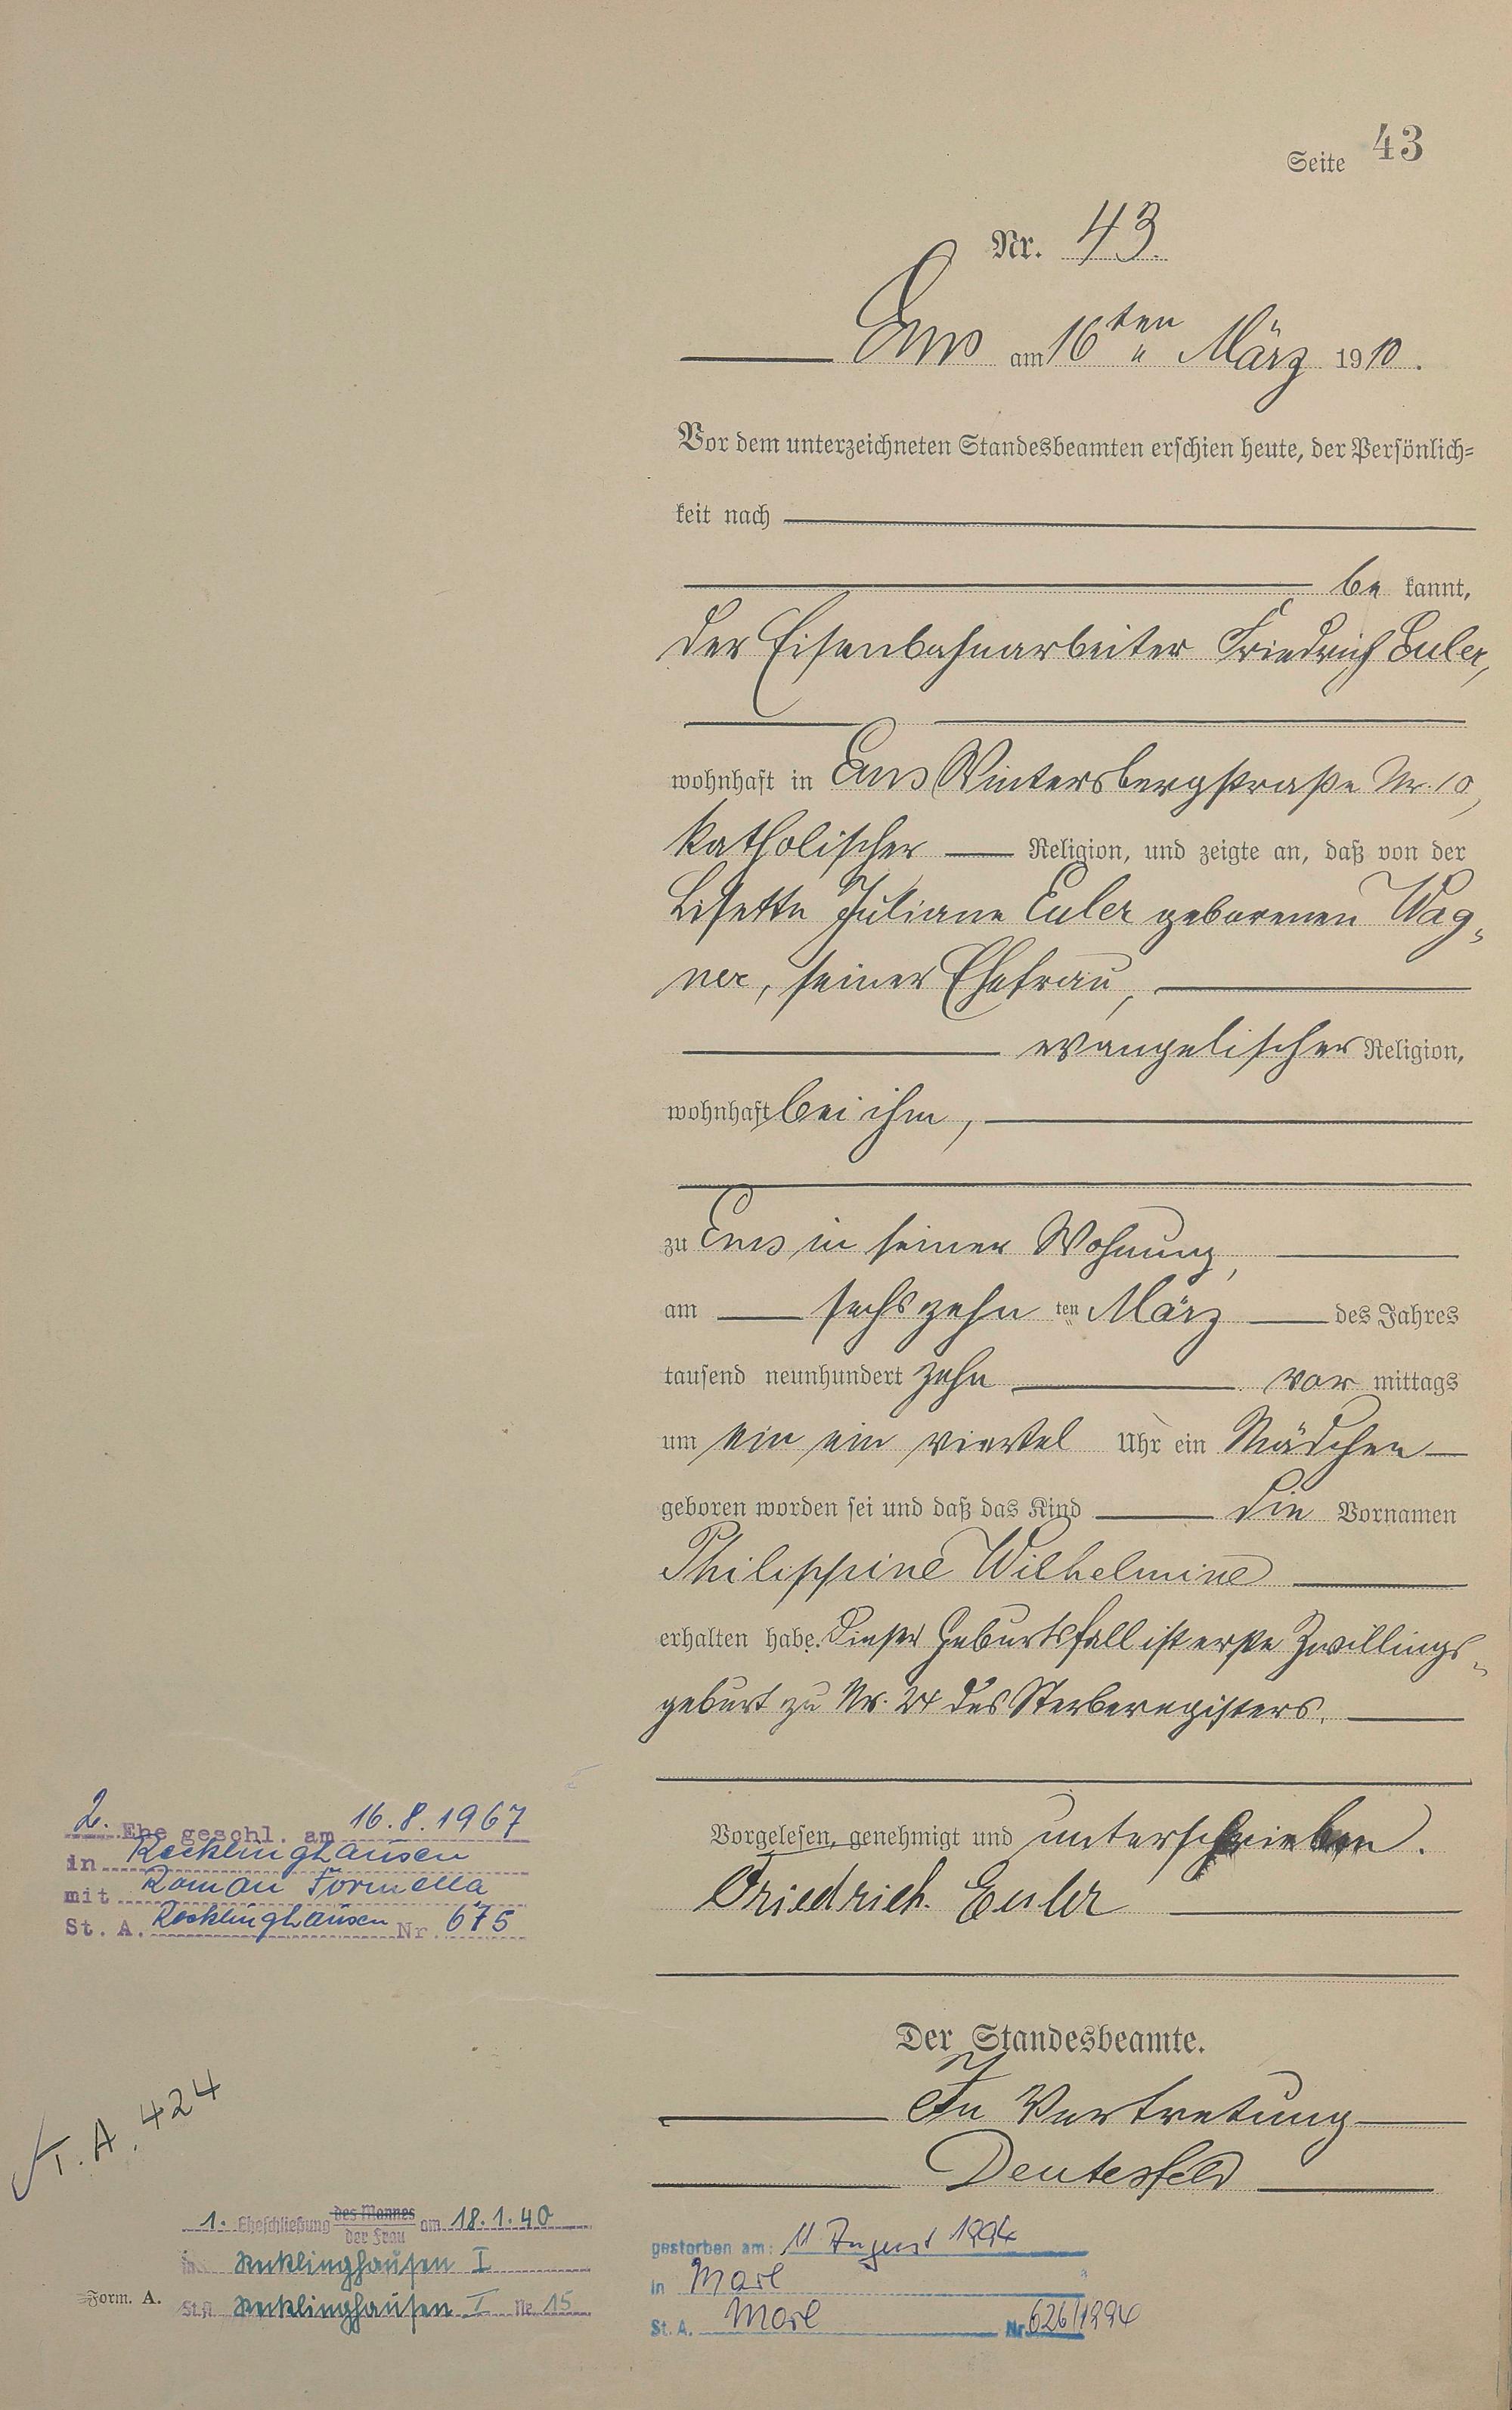 Seite 43
Nr. 43.
Ems am 16ten März 1910.
Vor dem unterzeichneten Standesbeamten erschien heute, der Persönlich=
keit nach
be kannt,
der Eisenbahnarbeiter Friedrich Euler,
wohnhaft in Ems Wintersbergstraße Nr. 10,
katholischer Religion, und zeigte an, daß von der
Lisette Juliane Euler geborenen Wag=
ner, seiner Ehefrau,
evangelischer Religion,
wohnhaft bei ihm,
zu Ems in seiner Wohnung,
am sechszehn ten März des Jahres
tausend neunhundert zehn vor mittags
um ein ein viertel Uhr ein Mädchen
geboren worden sei und daß das Kind die Vornamen
Philippine Wilhelmine
erhalten habe. Dieser Geburtsfall ist erste Zwillings=
geburt zu Nr. 24 des Sterberegisters.
Vorgelesen, genehmigt und unterschrieben.
Friedrich Euler
Der Standesbeamte.
In Vertretung
Deutesfeld
2. Ehe geschl. am 16.8.1967
in Recklinghausen
mit Roman Formella
St. A. Recklinghausen Nr. 675
T. A. 424
1. Eheschließung des Mannes der Frau am 18.1.40
in Recklinghausen I
St.A. Recklinghausen I Nr. 15
Form. A.
gestorben am: 11 August 1994
in Marl
St. A. Marl Nr. 626/1994